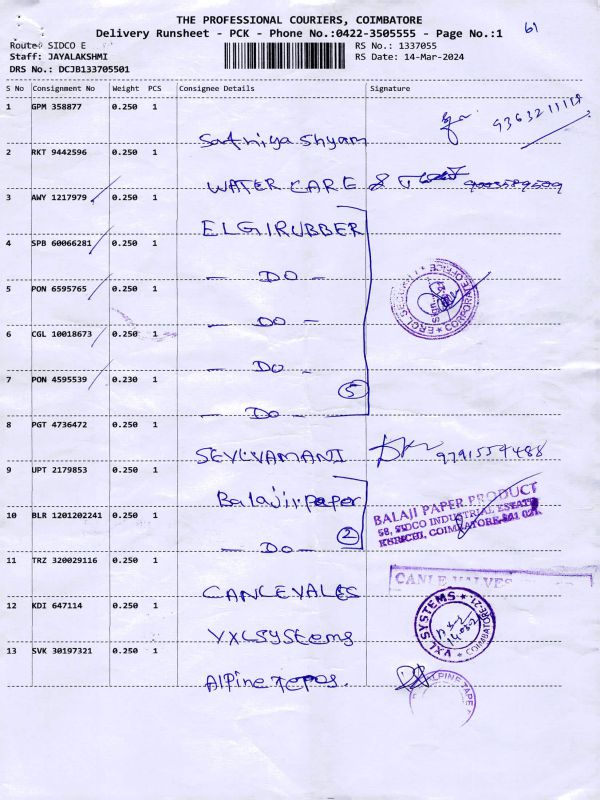 THE PROFESSIONAL COURIERS, COIMBATORE
Delivery Runsheet - PCK - Phone No.:0422-3505555 - Page No.:1
61
Route: SIDCO E
Staff: JAYALAKSHMI
DRS No.: DCJB133705501
RS No.: 1337055
RS Date: 14-Mar-2024
S No Consignment No Weight PCS Consignee Details Signature
1 GPM 358877 0.250 1
Sathiya Shyam 9363211118
2 RKT 9442596 0.250 1
WATER CARE &
3 AWY 1217979 0.250 1
ELGIRUBBER
4 SPB 60066281 0.250 1
- DO -
5 PON 6595765 0.250 1
- DO -
6 CGL 10018673 0.250 1
- DO -
7 PON 4595539 0.230 1
- DO -
5
ERCL SECURITY * CORPORATE OFFICE *
8 PGT 4736472 0.250 1
SELVAMANI 9791557488
9 UPT 2179853 0.250 1
Balaji paper
BALAJI PAPER PRODUCT
58, SIDCO INDUSTRIAL ESTATE
KURICHI, COIMBATORE-641 021.
10 BLR 1201202241 0.250 1
- DO -
2
11 TRZ 320029116 0.250 1
CANLEVALES
CANLE VALVES
12 KDI 647114 0.250 1
VXLSYSTEMS
VXL SYSTEMS * COIMBATORE-21 *
13 SVK 30197321 0.250 1
Alpine Tapes.
ALPINE TAPE